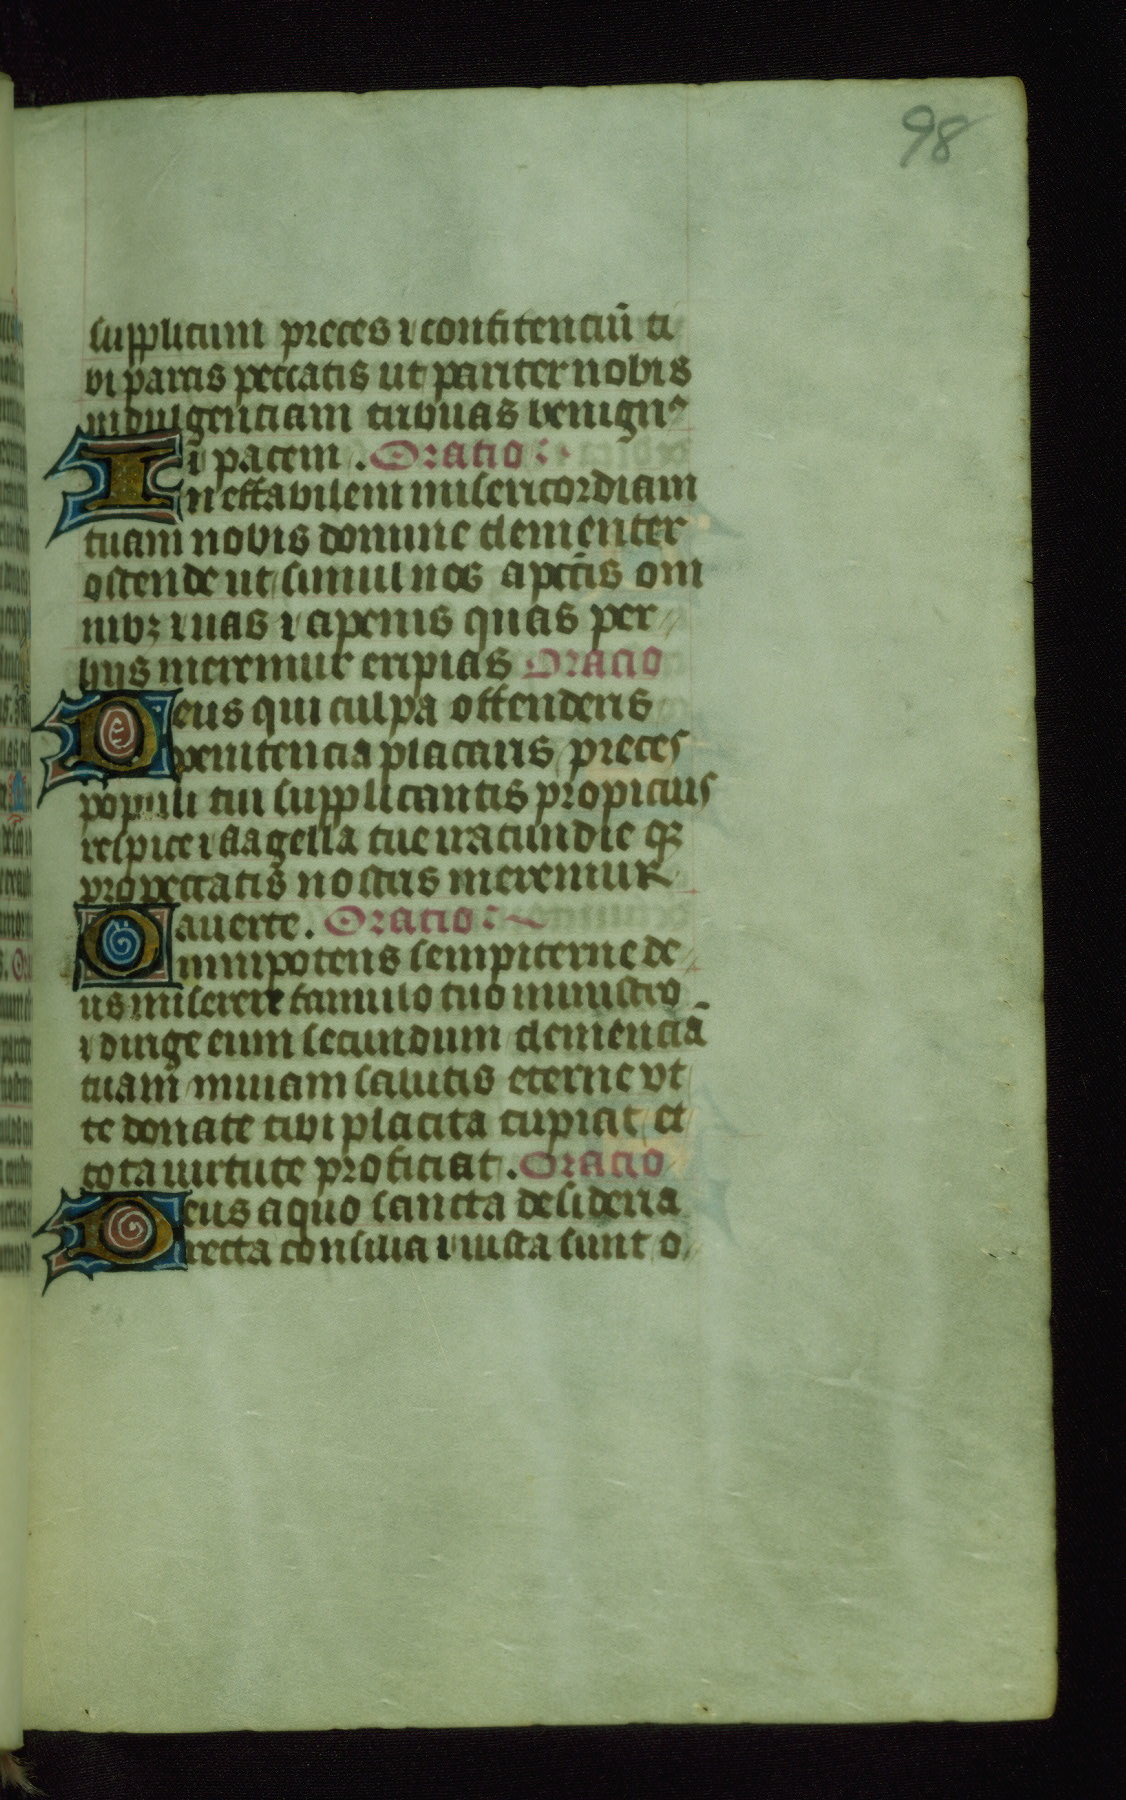 98
supplicum preces ⁊ confitenciū ti
bi parcis peccatis ut pariter nobis
indulgenciam tribuas benign⁹
⁊ pacem. Oratio
Ineffabilem misericordiam
tuam nobis domine clementer
ostende ut simul nos a pctīs om
nibꝫ exuas ⁊ a penis quas pro
hiis meremur eripias Oracio
Deus qui culpa offenderis
penitencia placaris preces
populi tui supplicantis propicius
respice ⁊ flagella tue iracundie q̄
pro peccatis nostris meremur
auerte. Oracio
Omnipotens sempiterne de
us miserere famulo tuo ministro
⁊ dirige eum secundum clemenciā
tuam in uiam salutis eterne vt
te donate tibi placita cupiat et
tota uirtute proficiat. Oracio
Deus a quo sancta desideria
recta consilia ⁊ iusta sunt o